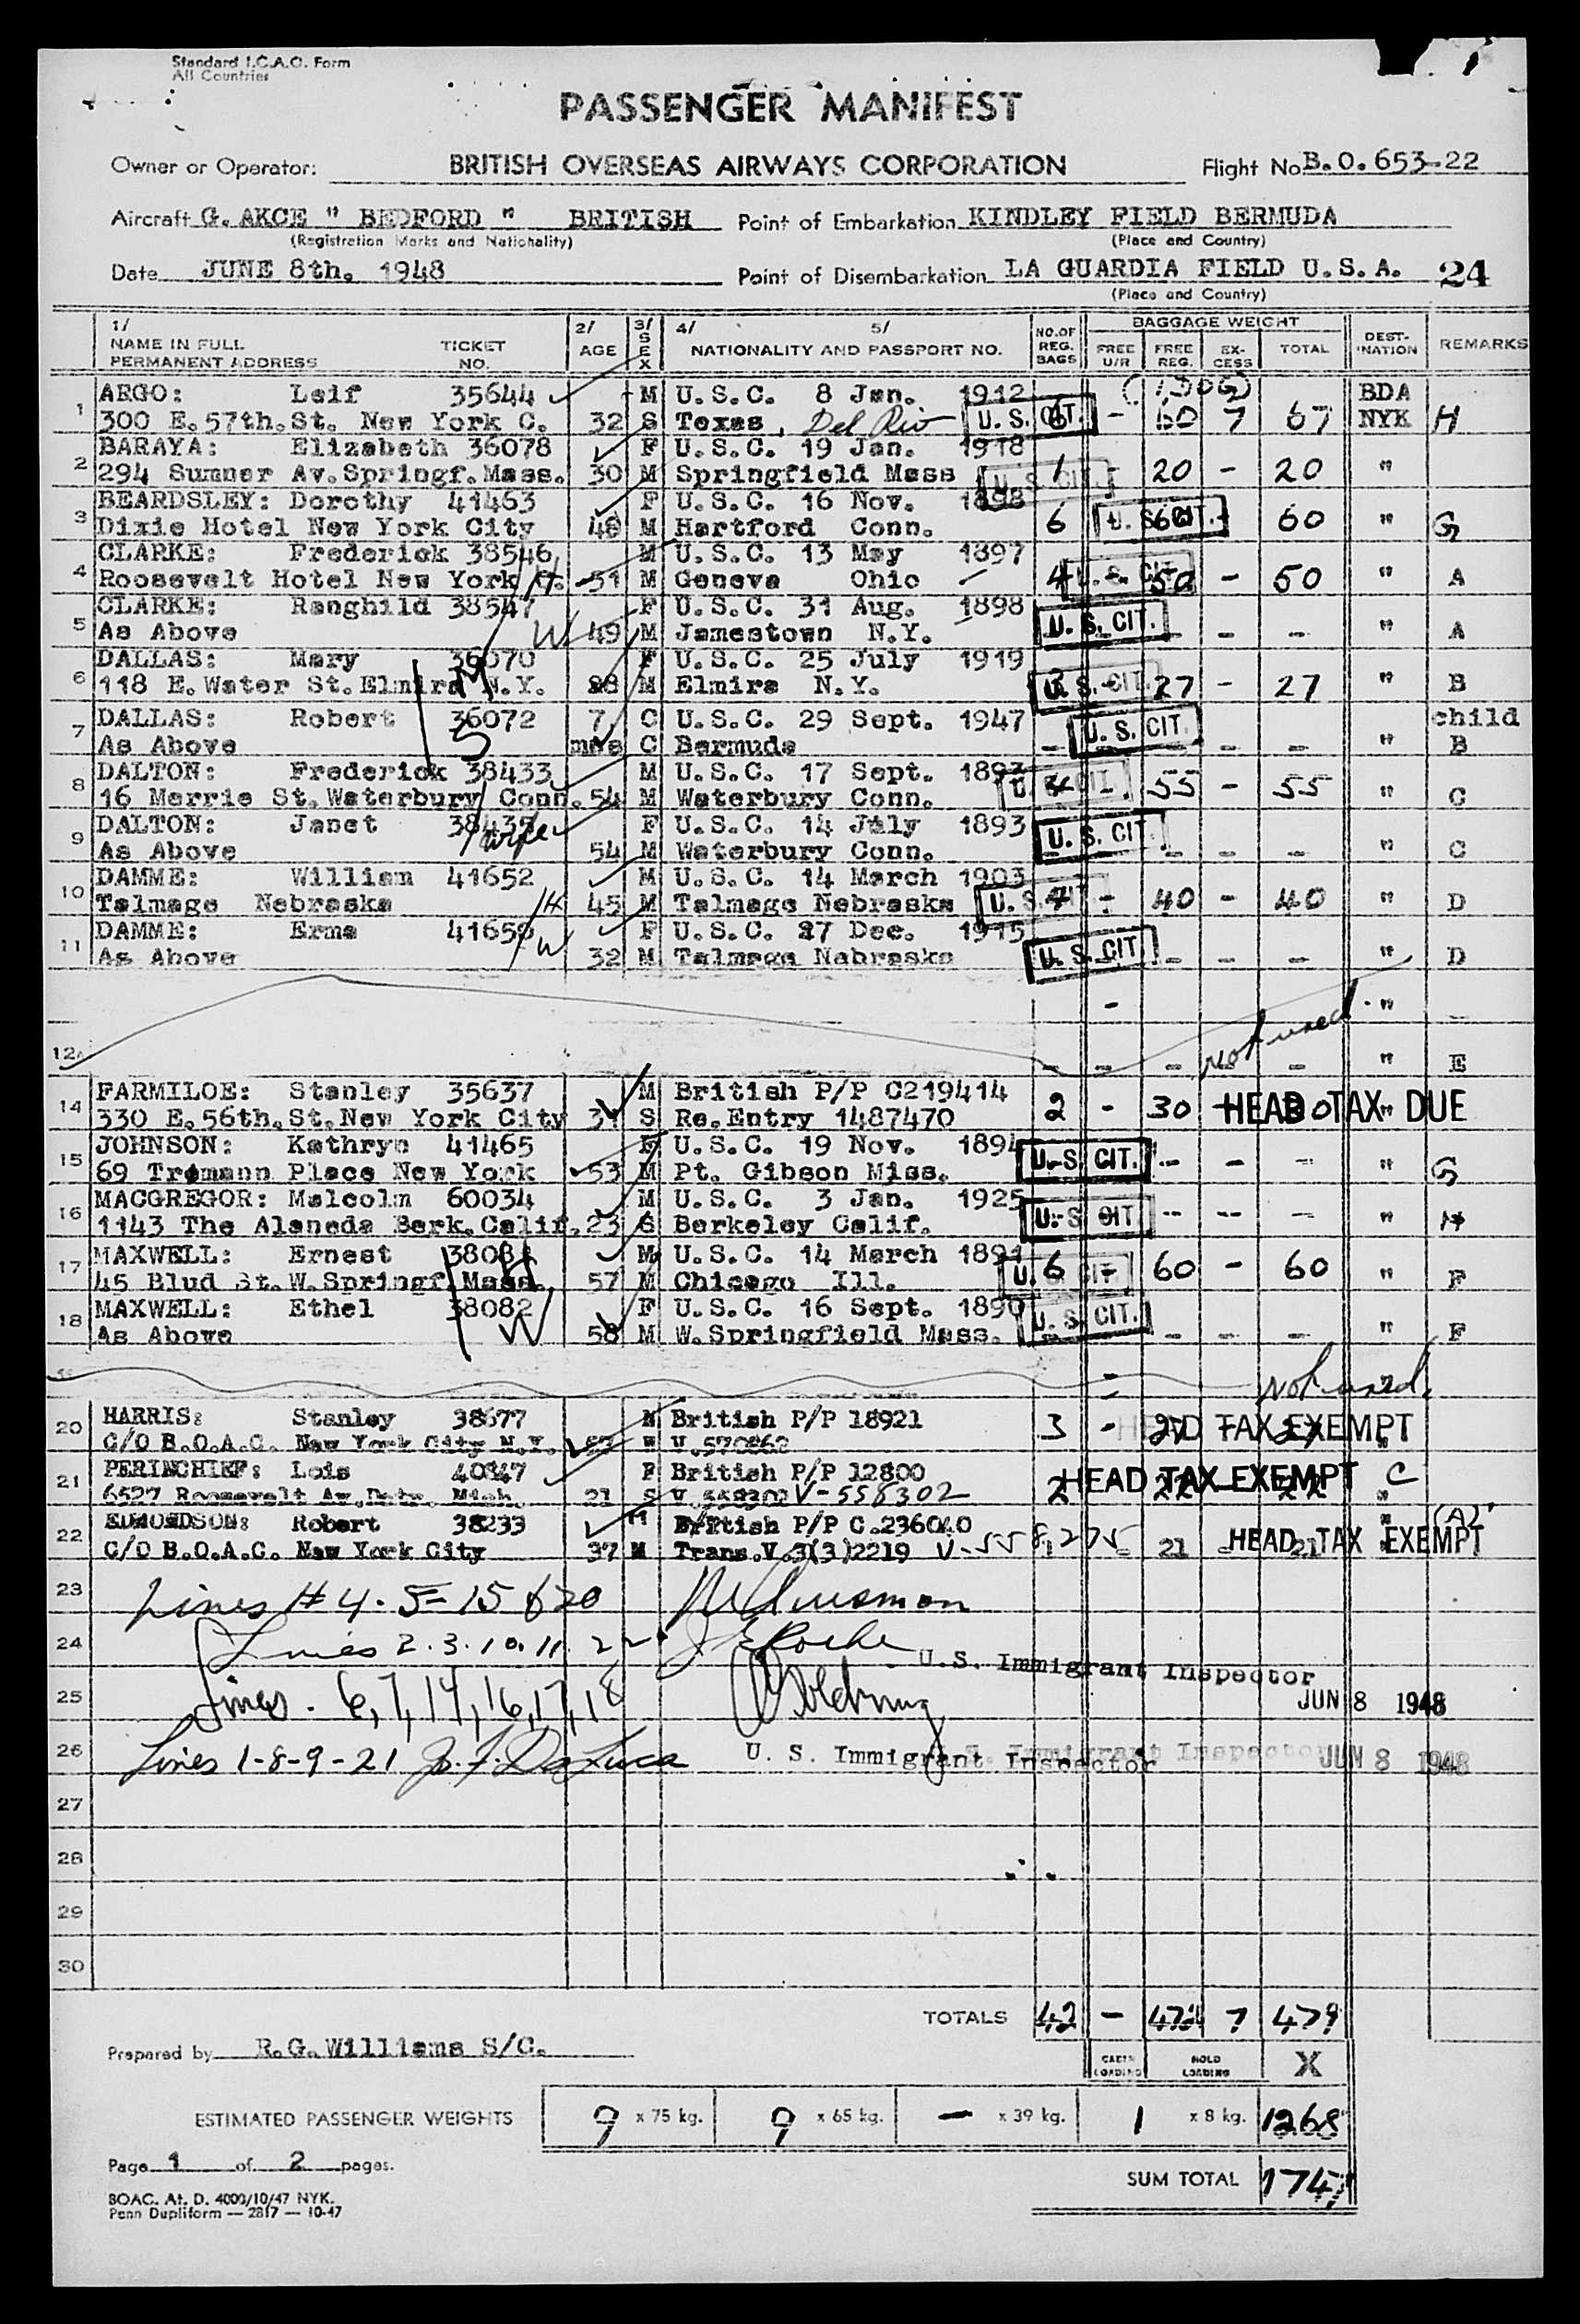 Standard I.C.A.O. Form
All Countries
PASSENGER MANIFEST
Owner or Operator: BRITISH OVERSEAS AIRWAYS CORPORATION Flight No B.O.653-22
Aircraft G. AKCE " BEDFORD " BRITISH Point of Embarkation KINDLEY FIELD BERMUDA
(Registration Marks and Nationality) (Place and Country)
Date JUNE 8th. 1948 Point of Disembarkation LA GUARDIA FIELD U.S.A. 24
(Place and Country)
1/ NAME IN FULL PERMANENT ADDRESS TICKET NO. 2/ AGE 3/ SEX 4/ 5/ NATIONALITY AND PASSPORT NO. NO.OF REG. BAGS BAGGAGE WEIGHT FREE U/R FREE REG. EX-CESS TOTAL DEST-'NATION REMARKS
ARGO: Leif 35644 M U.S.C. 8 Jan. 1912 BDA
1 300 E.57th.St. New York C. 32 S Texas, Del Rio U.S. CIT. 6 - 60 7 67 NYK H
BARAYA: Elizabeth 36078 F U.S.C. 19 Jan. 1918
2 294 Sumner Av.Springf.Mass. 30 M Springfield Mass U.S. CIT. 1 - 20 - 20 "
BEARDSLEY: Dorothy 41463 F U.S.C. 16 Nov. 1898
3 Dixie Hotel New York City 48 M Hartford Conn. 6 U.S. CIT. 60 - 60 " G
CLARKE: Frederick 38546 M U.S.C. 13 May 1897
4 Roosevelt Hotel New York H. 51 M Geneva Ohio 4 U.S. CIT. - 50 - 50 " A
CLARKE: Ranghild 38547 F U.S.C. 31 Aug. 1898
5 As Above W 49 M Jamestown N.Y. U.S. CIT. - - - " A
DALLAS: Mary 36070 F U.S.C. 25 July 1919
6 118 E.Water St.Elmira N.Y. M 28 M Elmira N.Y. U.S. CIT. - 27 - 27 " B
DALLAS: Robert 36072 7 C U.S.C. 29 Sept. 1947 child
7 As Above S mns C Bermuda - U.S. CIT. - - - " B
DALTON: Frederick 38433 M U.S.C. 17 Sept. 1893
8 16 Merrie St.Waterbury Conn. 54 M Waterbury Conn. U.S. CIT. 55 - 55 " C
DALTON: Janet F U.S.C. 14 July 1893
9 As Above wife 54 M Waterbury Conn. U.S. CIT. - - - " C
DAMME: William 41652 M U.S.C. 14 March 1903
10 Talmage Nebraska H 45 M Talmage Nebraska U.S. CIT. 4 - 40 - 40 " D
DAMME: Erma F U.S.C. 27 Dec. 1915
11 As Above W 32 M Talmage Nabraska U.S. CIT. - - - " D
- "
12 - - - not used - " E
FARMILOE: Stanley 35637 M British P/P C219414
14 330 E.56th.St.New York City 31 S Re.Entry 1487470 2 - 30 - 30 " HEAD TAX DUE
JOHNSON: Kathryn 41465 F U.S.C. 19 Nov. 1894
15 69 Tremann Place New York 53 M Pt. Gibson Miss. U.S. CIT. - - - " G
MACGREGOR: Malcolm 60034 M U.S.C. 3 Jan. 1925
16 1143 The Alameda Berk.Calif. 23 S Berkeley Calif. U.S. CIT. -- -- - " H
MAXWELL: Ernest M U.S.C. 14 March 1891
17 45 Blud St.W.Springf.Mass. H 57 M Chicago Ill. U.S. CIT. 6 - 60 - 60 " F
MAXWELL: Ethel 38082 F U.S.C. 16 Sept. 1890
18 As Above W 58 M W.Springfield Mass. U.S. CIT. - - - " F
not used.
HARRIS: Stanley 38677 M British P/P 18921
20 C/O B.O.A.C. New York City N.Y. 57 W V.570862 3 - 27 - 27 " HEAD TAX EXEMPT
PERINCHIEF: Lois 40847 F British P/P 12800 C
21 6527 Roosevelt Av.Detr. Mich. 21 S V.558302 V-558302 2 22 - 22 " HEAD TAX EXEMPT
EDMONDSON: Robert 38233 M British P/P C.236040 " (A)
22 C/O B.O.A.C. New York City 37 M Trans.V.3(3)2219 V-558,275 - 21 - 21 HEAD TAX EXEMPT
23 Lines # 4-5-15 & 20
24 Lines 2.3.10.11.22 J E Roche U.S. Immigrant Inspector
25 Lines - 6,7,14,16,17,18 JUN 8 1948
26 Lines 1-8-9-21 J. F. DeLuca U. S. Immigrant Inspector JUN 8 1948
27
28
29
30
TOTALS 42 - 472 7 479
Prepared by R.G.Williams S/C. CABIN LOADING HOLD LOADING X
ESTIMATED PASSENGER WEIGHTS 9 x 75 kg. 9 x 65 kg. - x 39 kg. 1 x 8 kg. 1268
Page 1 of 2 pages.
SUM TOTAL 1747
BOAC. At. D. 4000/10/47 NYK.
Penn Dupliform — 2817 — 10-47